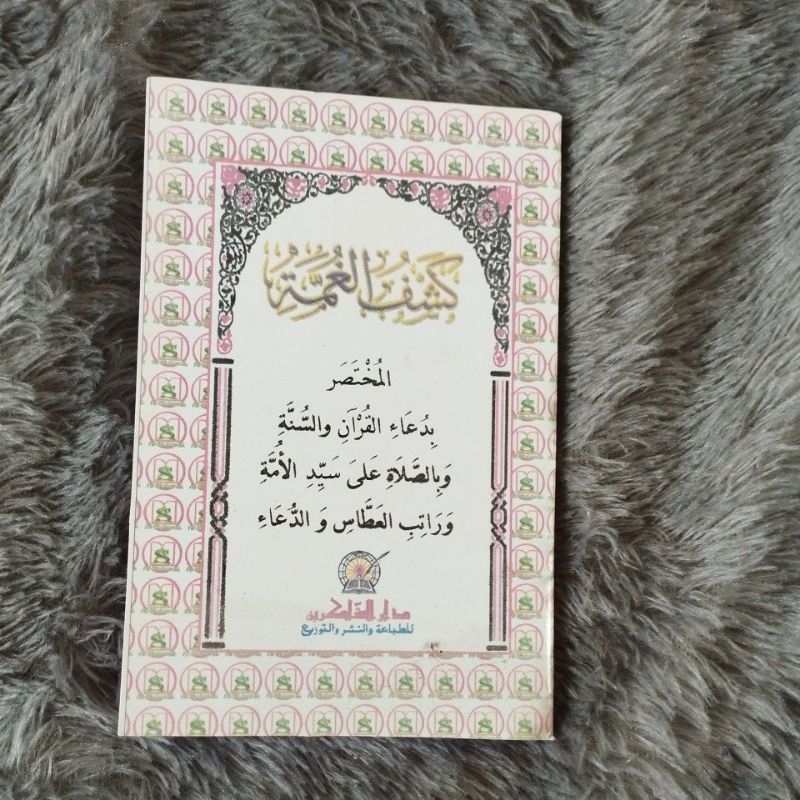 كَشْفُ الغُمَّةِ
المُخْتَصَر
بِدُعَاءِ القُرْآنِ والسُّنَّةِ
وَبِالصَّلَاةِ عَلَى سَيِّدِ الأُمَّةِ
وَرَاتِبِ العَطَّاسِ وَ الدُّعَاءِ
للطباعة والنشر والتوزيع